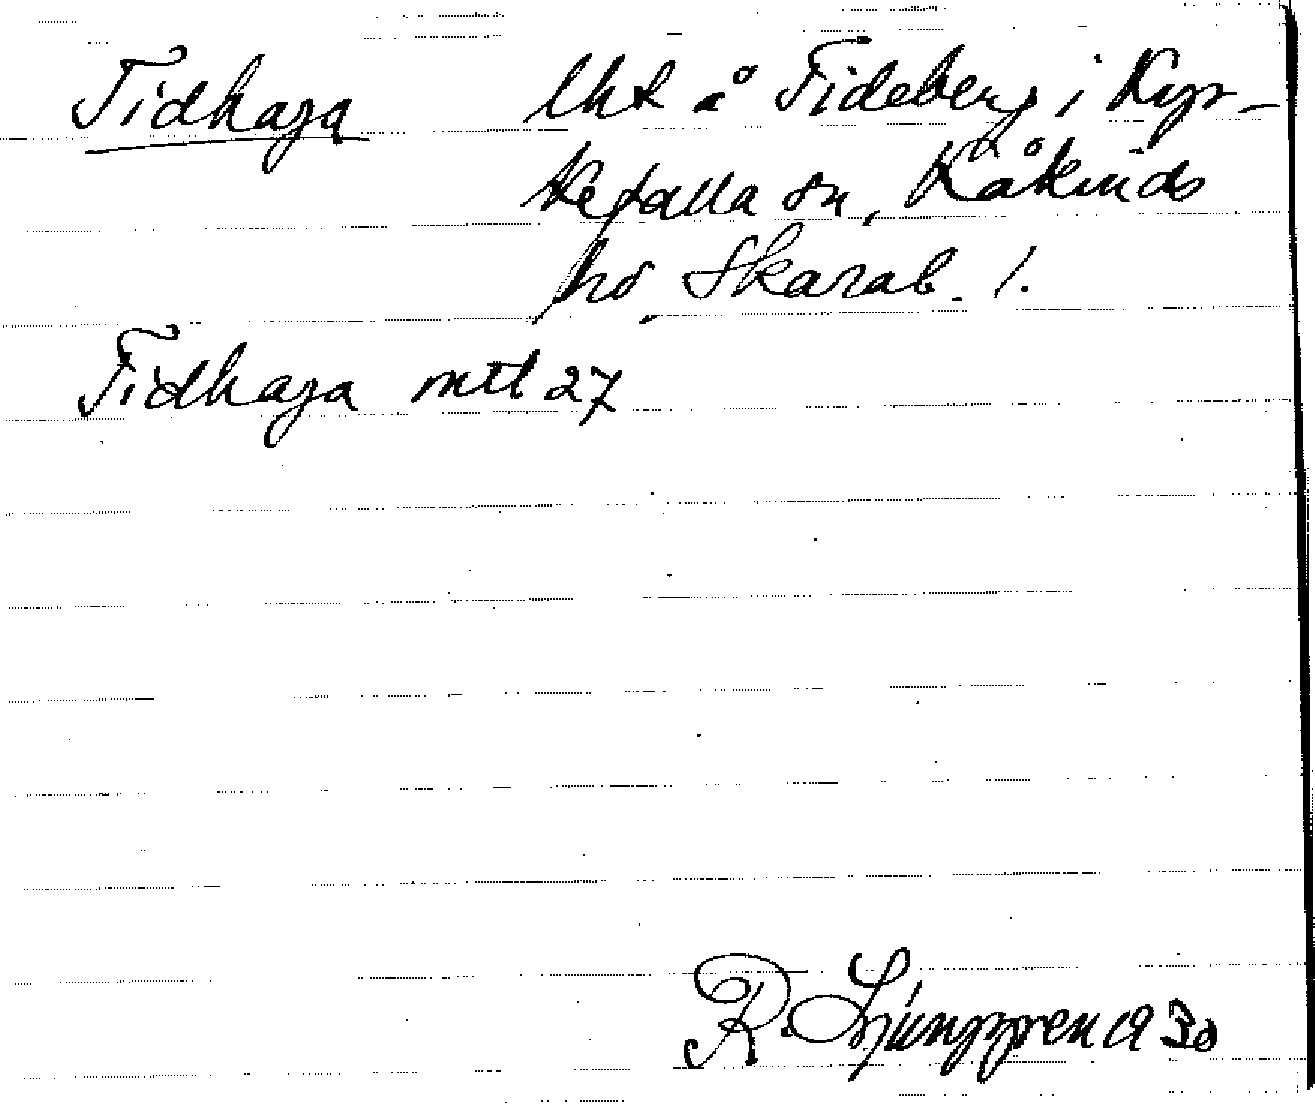 Tidhaga lht å Tideberg i Kyr-
kefalla sn, Kåkinds
hd, Skarab. l.
Tidhaga mtl 27
R. Ljunggren 1930